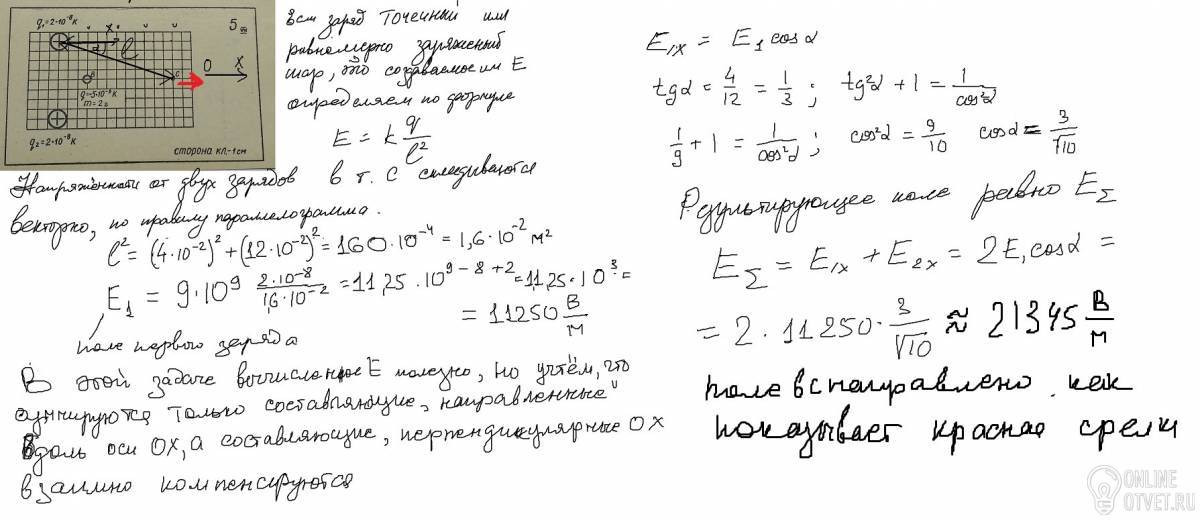 q₁=2·10⁻⁸К
5
l
α
X
O X
B
C
q=-5·10⁻⁸К
m=2г
q₂=2·10⁻⁸К
сторона кл.-1см
заряд точечный или
равномерно заряженный
шар, то создаваемое им E
определяем по формуле
E = k q/l²
Напряжённости от двух зарядов в т. C складываются
векторно, по правилу параллелограмма.
l² = (4·10⁻²)² + (12·10⁻²)² = 160·10⁻⁴ = 1,6·10⁻² м²
E₁ = 9·10⁹ 2·10⁻⁸/1,6·10⁻² = 11,25·10⁹⁻⁸⁺² = 11,25·10³ =
= 11250 В/м
поле первого заряда
В этой задаче вычисленное E полезно, но учтём, что
суммируются только составляющие, направленные
вдоль оси OX, а составляющие, перпендикулярные OX
взаимно компенсируются
E₁ₓ = E₁ cosα
tgα = 4/12 = 1/3 ; tg²α + 1 = 1/cos²α
1/9 + 1 = 1/cos²α ; cos²α = 9/10 cosα = 3/√10
Результирующее поле равно E_Σ
E_Σ = E₁ₓ + E₂ₓ = 2E₁cosα =
= 2·11250·3/√10 ≈ 21345 В/м
поле в с направлено как
показывает красная
ONLINE
OTVET.RU